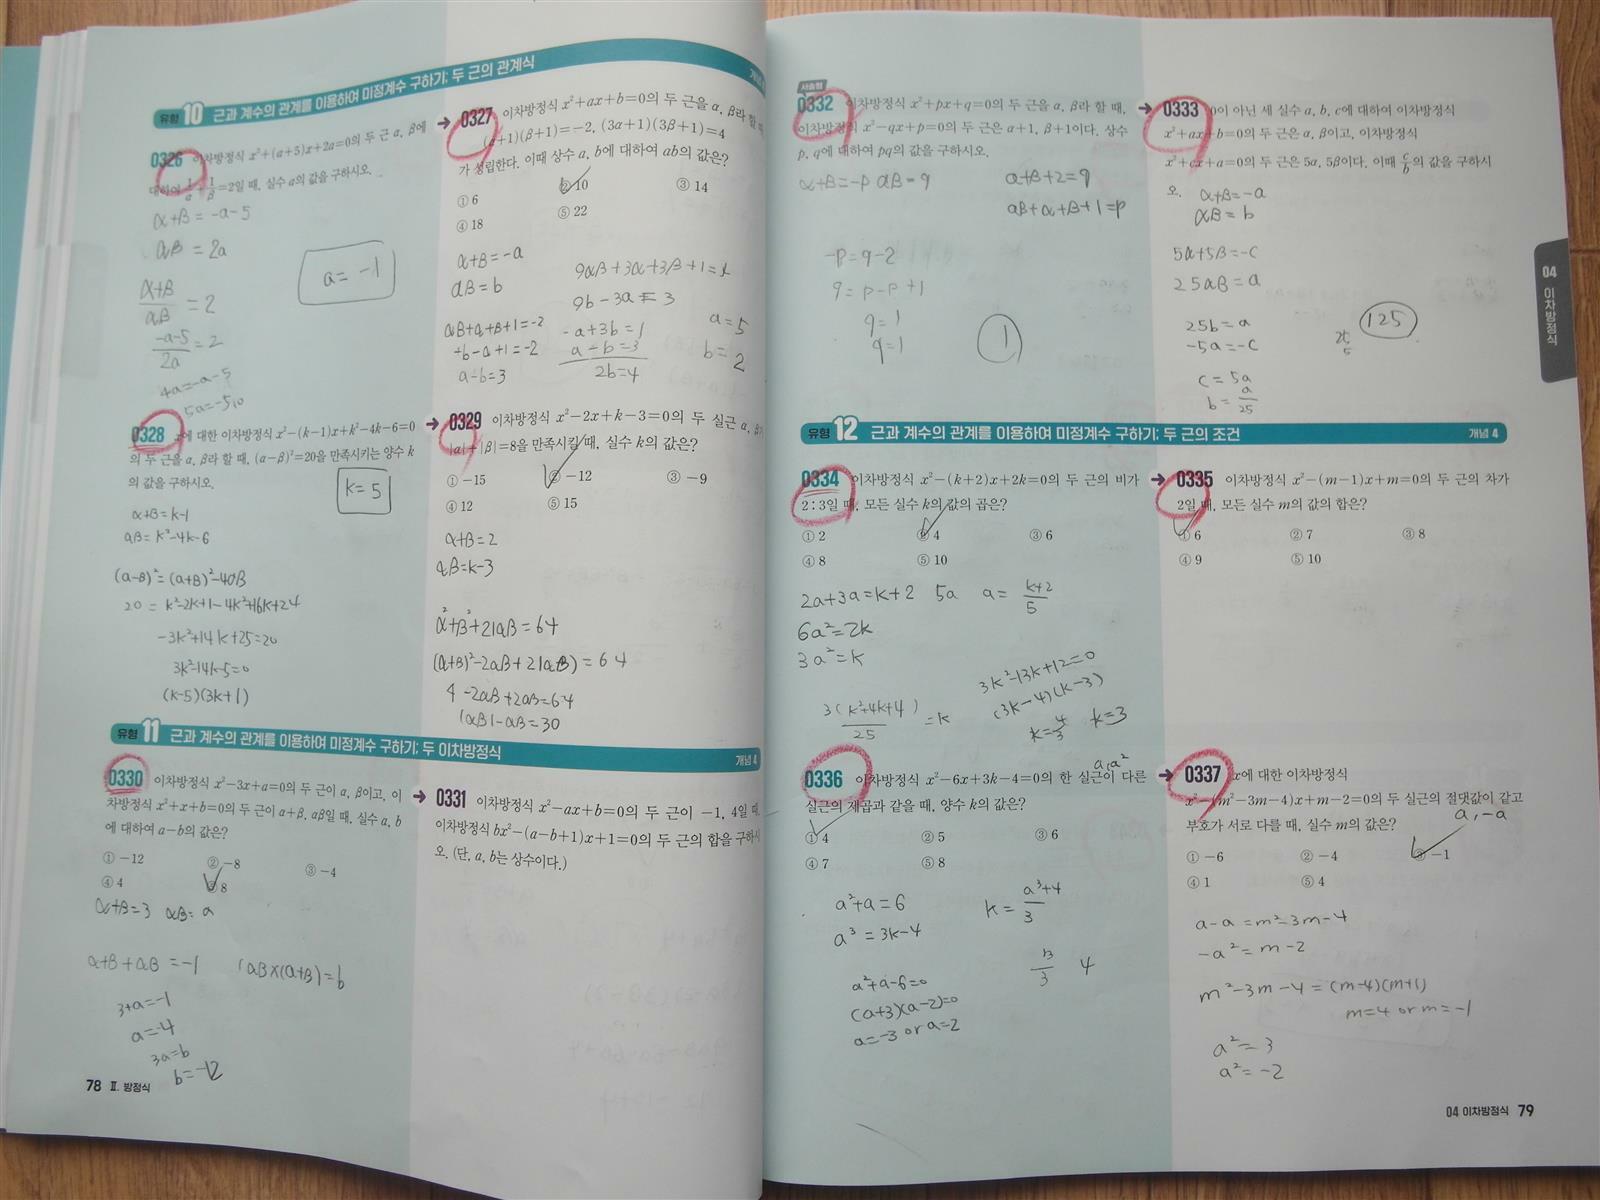 유형 10 근과 계수의 관계를 이용하여 미정계수 구하기; 두 근의 관계식
0326 이차방정식 x²+(a+5)x+2a=0의 두 근 α, β에
대하여 1/α+1/β=2일 때, 실수 a의 값을 구하시오.
α+β = -a-5
αβ = 2a
α+β/αβ = 2
-a-5/2a = 2
4a=-a-5
a= -1
→ 0327 이차방정식 x²+ax+b=0의 두 근을 α, β라 할 때
(α+1)(β+1)=-2, (3α+1)(3β+1)=4
가 성립한다. 이때 상수 a, b에 대하여 ab의 값은?
① 6 ② 10 ③ 14
④ 18 ⑤ 22
α+β=-a
αβ=b
αβ+α+β+1=-2
+b-a+1=-2
a-b=3
9αβ+3α+3β+1=4
9b-3a=3
-a+3b=1
a-b=3
2b=4
a=5
b=2
0328 x에 대한 이차방정식 x²-(k-1)x+k²-4k-6=0
의 두 근을 α, β라 할 때, (α-β)²=20을 만족시키는 양수 k
의 값을 구하시오.
k=5
α+β=k-1
αβ=k²-4k-6
(α-β)²=(α+β)²-4αβ
20=k²-2k+1-4k²+16k+24
-3k²+14k+25=20
3k²-14k-5=0
(k-5)(3k+1)
→ 0329 이차방정식 x²-2x+k-3=0의 두 실근 α, β가
|α|+|β|=8을 만족시킬 때, 실수 k의 값은?
① -15 ② -12 ③ -9
④ 12 ⑤ 15
α+β=2
αβ=k-3
α²+β²+2|αβ=64
(α+β)²-2αβ+2|αβ|=64
4-2αβ+2αβ=64
|αβ|-αβ=30
유형 11 근과 계수의 관계를 이용하여 미정계수 구하기; 두 이차방정식 개념 4
0330 이차방정식 x²-3x+a=0의 두 근이 α, β이고, 이
차방정식 x²+x+b=0의 두 근이 α+β, αβ일 때, 실수 a, b
에 대하여 a-b의 값은?
① -12 ② -8 ③ -4
④ 4 ⑤ 8
α+β=3 αβ=a
α+β+αβ=-1 (αβ)×(α+β)=b
3+a=-1
a=-4
3a=b
b=-12
→ 0331 이차방정식 x²-ax+b=0의 두 근이 -1, 4일 때,
이차방정식 bx²-(a-b+1)x+1=0의 두 근의 합을 구하시
오. (단, a, b는 상수이다.)
78 Ⅱ. 방정식
서술형
0332 이차방정식 x²+px+q=0의 두 근을 α, β라 할 때,
이차방정식 x²-qx+p=0의 두 근은 α+1, β+1이다. 상수
p, q에 대하여 pq의 값을 구하시오.
α+β=-p αβ=q
α+β+2=q
αβ+α+β+1=p
-p=q-2
q=p-p+1
q=1
q=1
1
→ 0333 0이 아닌 세 실수 a, b, c에 대하여 이차방정식
x²+ax+b=0의 두 근은 α, β이고, 이차방정식
x²+cx+a=0의 두 근은 5α, 5β이다. 이때 c/b의 값을 구하시
오.
α+β=-a
αβ=b
5α+5β=-c
25αβ=a
25b=a
-5a=-c
c=5a
b=a/25
125
04 이차방정식
유형 12 근과 계수의 관계를 이용하여 미정계수 구하기; 두 근의 조건 개념 4
0334 이차방정식 x²-(k+2)x+2k=0의 두 근의 비가
2:3일 때, 모든 실수 k의 값의 곱은?
① 2 ② 4 ③ 6
④ 8 ⑤ 10
2a+3a=k+2 5a a=k+2/5
6a²=2k
3a²=k
3(k²+4k+4)/25=k
3k²-13k+12=0
(3k-4)(k-3)
k=4/3 k=3
→ 0335 이차방정식 x²-(m-1)x+m=0의 두 근의 차가
2일 때, 모든 실수 m의 값의 합은?
① 6 ② 7 ③ 8
④ 9 ⑤ 10
0336 이차방정식 x²-6x+3k-4=0의 한 실근이 다른
a, a²
실근의 제곱과 같을 때, 양수 k의 값은?
① 4 ② 5 ③ 6
④ 7 ⑤ 8
a²+a=6
a³=3k-4
k=a³+4/3
a²+a-6=0
(a+3)(a-2)=0
a=-3 or a=2
4
→ 0337 x에 대한 이차방정식
x²-(m²-3m-4)x+m-2=0의 두 실근의 절댓값이 같고
부호가 서로 다를 때, 실수 m의 값은?
a, -a
① -6 ② -4 ③ -1
④ 1 ⑤ 4
a-a=m²-3m-4
-a²=m-2
m²-3m-4=(m-4)(m+1)
m=4 or m=-1
a²=3
a²=-2
04 이차방정식 79